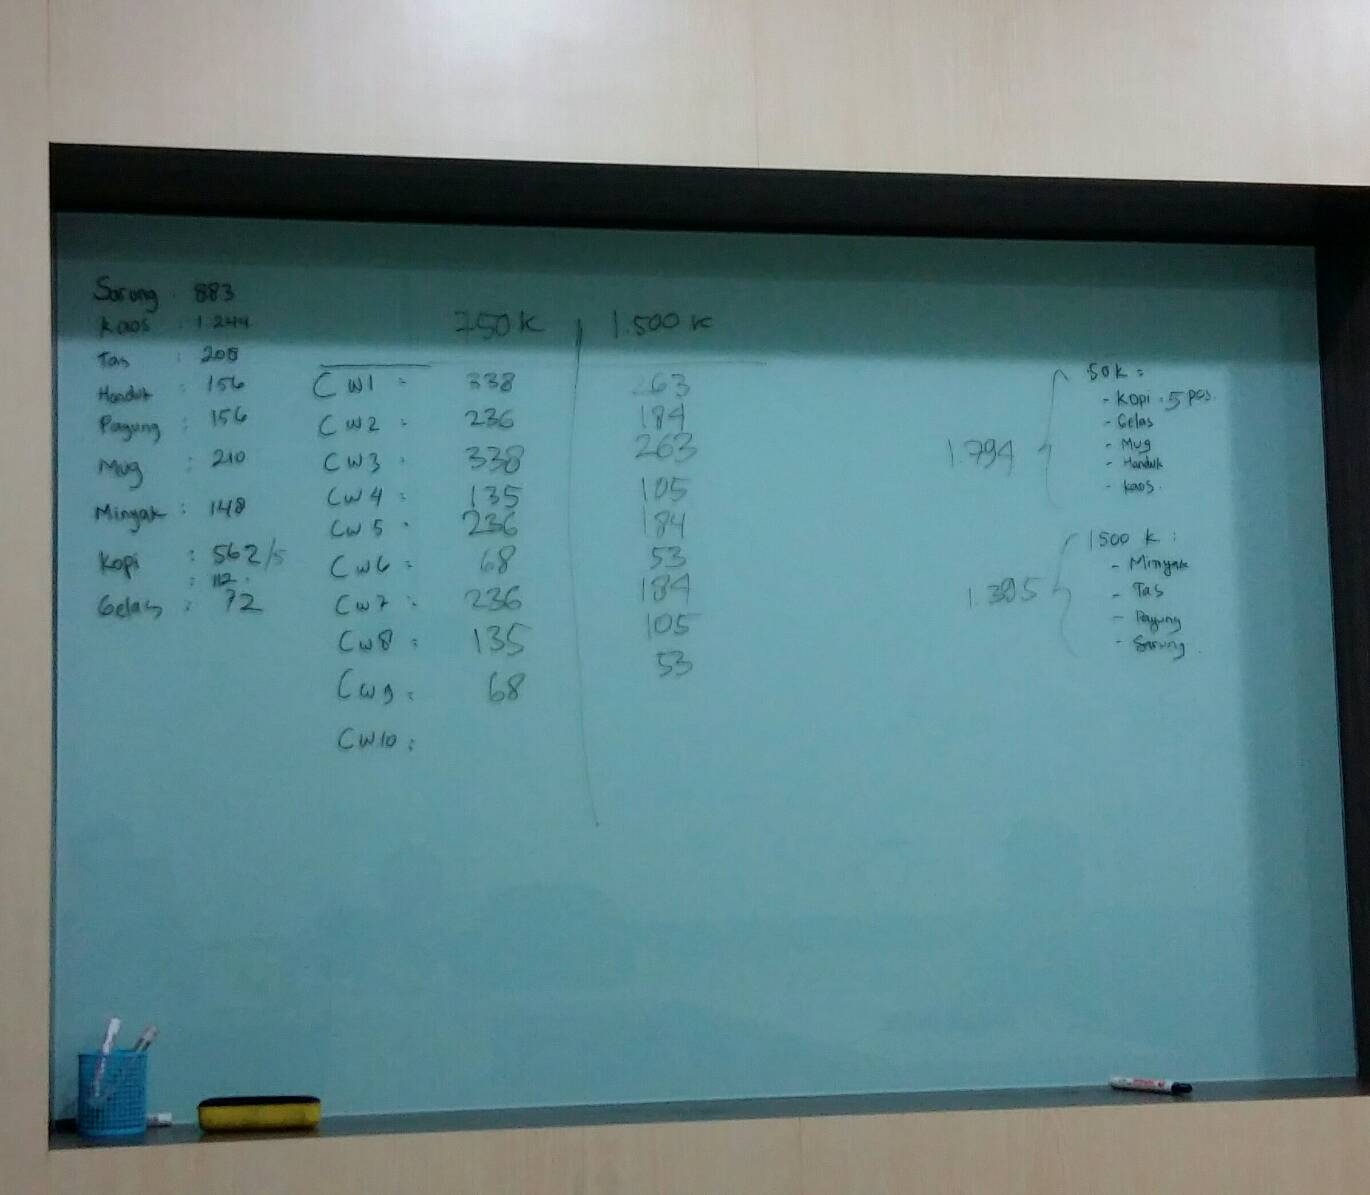 Sarung : 883
Kaos : 1.244
Tas : 205
Handuk : 156
Payung : 156
Mug : 210
Minyak : 148
Kopi : 562/5
: 112.
Gelas : 72
750 K 1.500 K
CW1 : 338 263
CW2 : 236 184
CW3 : 338 263
CW4 : 135 105
CW5 : 236 184
CW6 : 68 53
CW7 : 236 184
CW8 : 135 105
CW9 : 68 53
CW10 :
1.794
50 K :
- Kopi : 5 pcs.
- Gelas
- Mug
- Handuk
- Kaos.
1.395
1500 K :
- Minyak
- Tas
- Payung
- Sarung.